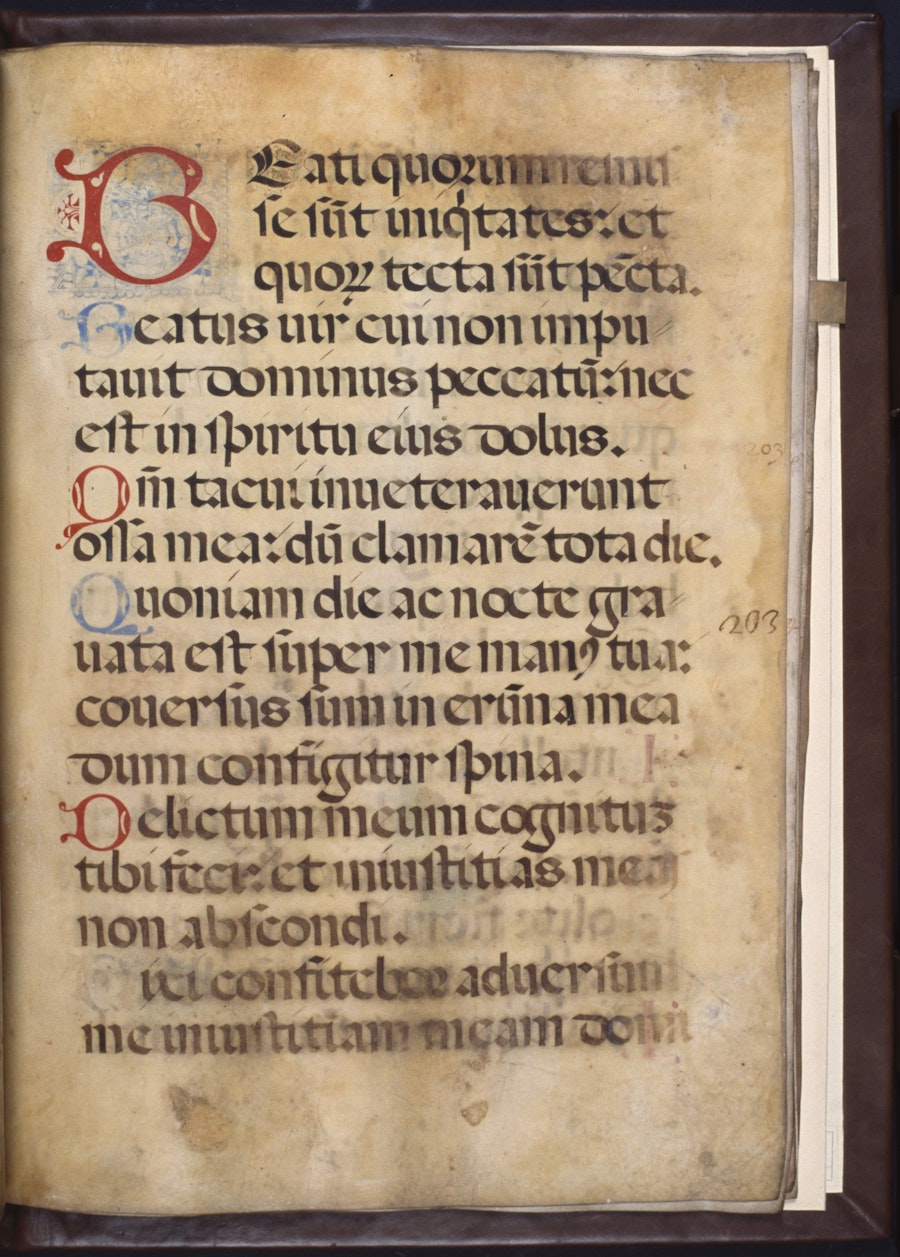 BEati quorum remis
se sūt iniq̇tates: et
quoꝝ tecta sūt pēcta.
Beatus uir cui non impu⸗
tauit dominus peccatū: nec
est in spiritu eius dolus.
Qm̄ tacui inueterauerunt
ossa mea: dū clamarē tota die.
Quoniam die ac nocte gra⸗
uata est super me manꝰ tua:
cōuersus sum in erūna mea
dum configitur spina.
Delictum meum cognituꝫ
tibi feci: et iniustitias meas
non abscondi.
ixi confitebor aduersum
me iniustitiam meam domi
203
203